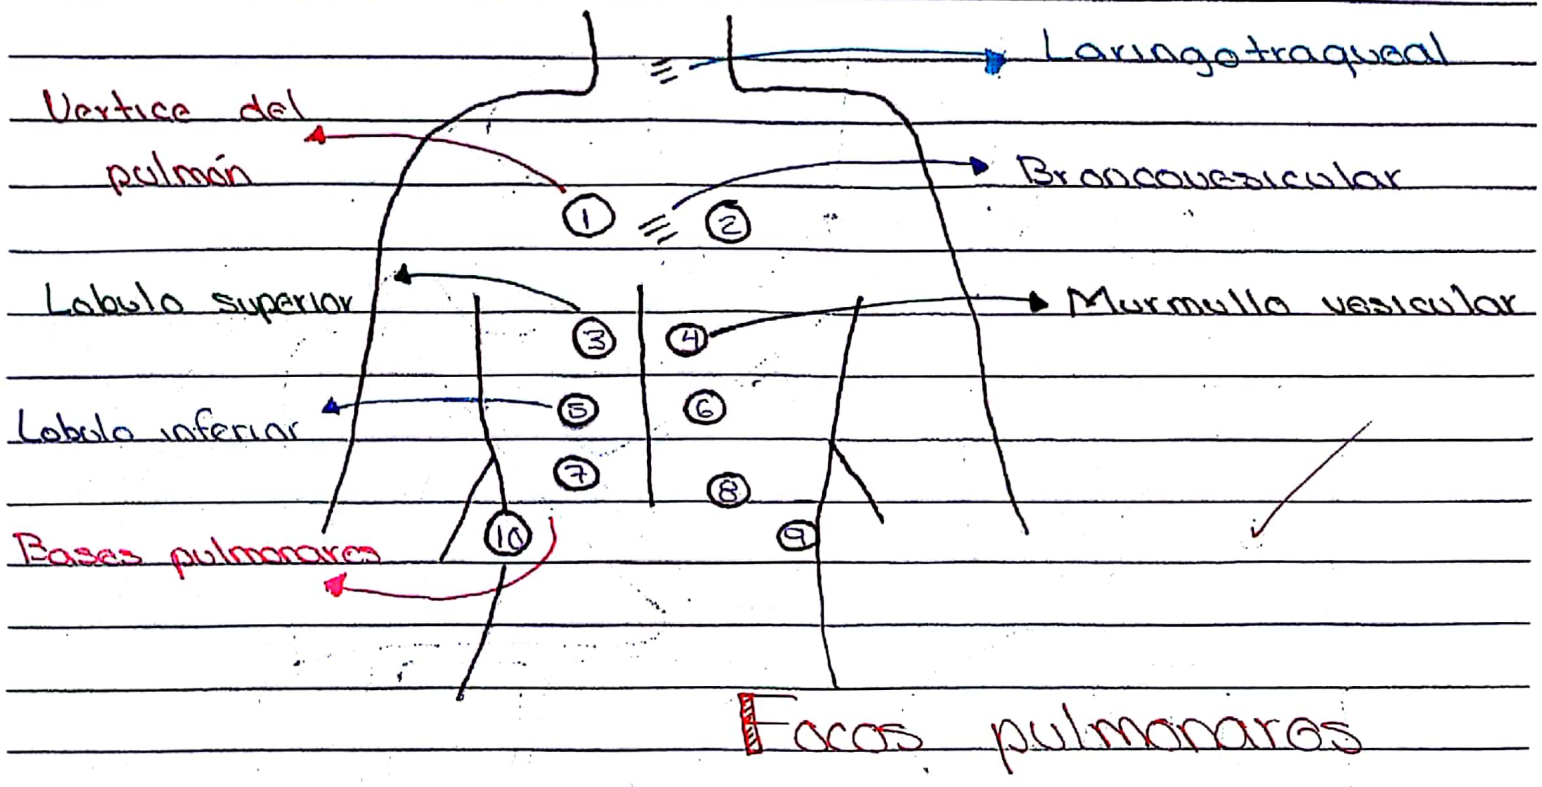 Laringotraqueal
Vertice del
pulmón
Broncovesicular
1
2
Lobulo superior
Murmullo vesicular
3
4
Lobulo inferior
5
6
7
8
Bases pulmonares
10
9
Focos pulmonares